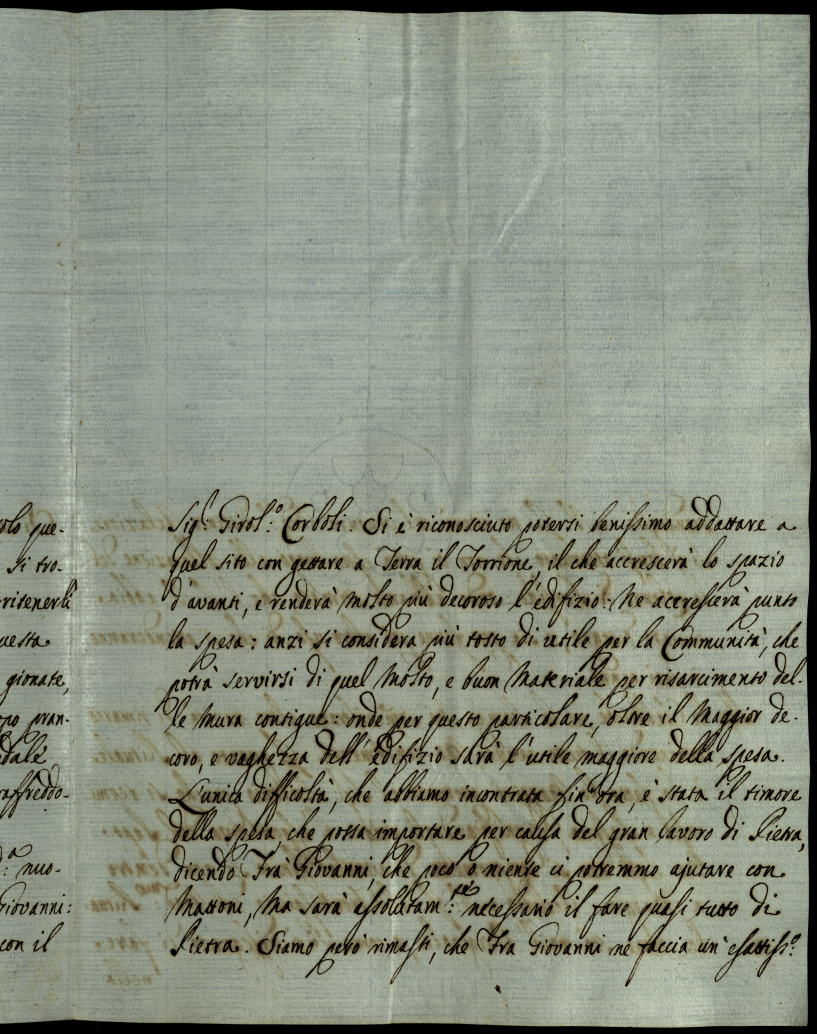 olo que-
si tro-
ritenerli
uesta
gionate,
pran-
dale
affreddo-
nuo-
Giovanni:
con il
Sig.r Girol.o Corboli. Si è riconosciuto potersi benissimo addattare a
quel sito con gettare a Terra il Torrione, il che accrescerà lo spazio
d'avanti, e renderà molto più decoroso l'edifizio: Ne accrescerà punto
la spesa: anzi si considera più tosto di utile per la Communità, che
potrà servirsi di quel molto, e buon Materiale per risarcimento del-
le Mura contigue: onde per questo particolare, oltre il Maggior de-
coro, e vaghezza dell'edifizio sarà l'utile maggiore della spesa.
L'unica difficoltà, che abbiamo incontrata fin'ora, è stata il timore
della spesa, che possa importare per causa del gran lavoro di Pietra,
dicendo Frà Giovanni, che poco o niente ci potremmo ajutare con
Mattoni, Ma sarà assolutam.te necessario il fare quasi tutto di
Pietra. Siamo però rimasti, che Fra Giovanni ne faccia un'esattiss.o